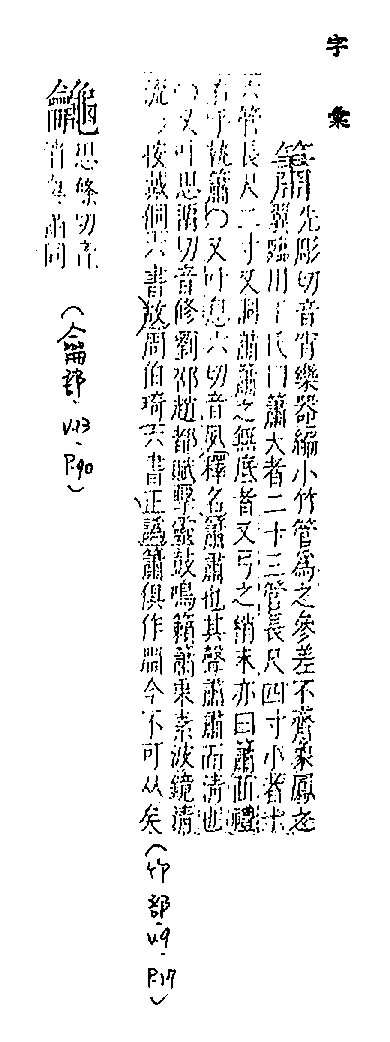 字彙
簫先彫切音宵樂器編小竹管為之參差不齊象鳳之
翼 臨川王氏曰簫大者二十三管長尺四寸小者十
六管長尺二寸又洞簫簫之無底者又弓之綃末亦曰簫曲禮
右手執簫 又叶息六切音夙 釋名簫肅也其聲肅肅而清也
又叶思 切音修劉邵趙都賦擊靈鼓鳴籟簫東素波鏡清
流 按戴侗六書故周伯琦六書正譌簫俱作 今不可从矣
(竹部·v.9·P.17)
思條切音
宵與簫同
(龠部·v.13·P.90)